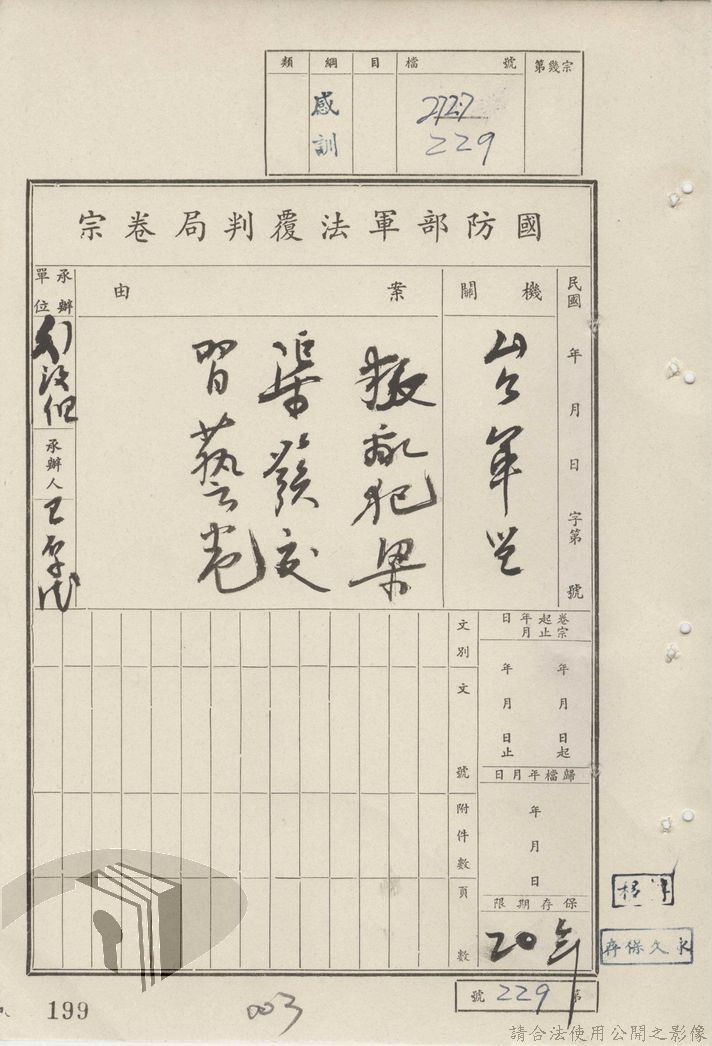 類 綱 目 檔號 第幾宗
感訓 2727
229
國防部軍法覆判局卷宗
民國 年 月 日 字第 號
機關
案由
叛亂犯梁
渠發交
習藝卷
承辦單位
承辦人
卷宗起止年月日
年 月 日起
年 月 日止
歸檔年月日
年 月 日
保存期限
20年
文別
文號
附件數
頁數
永久保存
第 229 號
199
003
請合法使用公開之影像